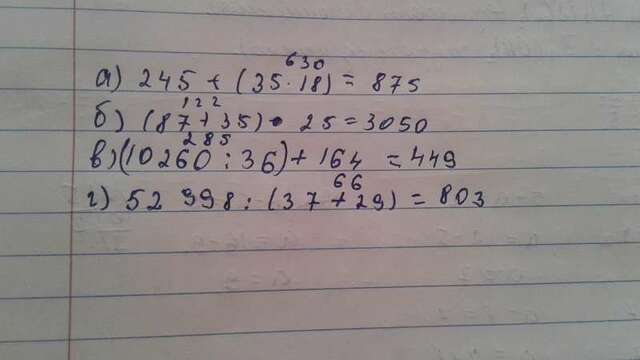 630
а) 245 + (35 · 18) = 875
122
б) (87 + 35) · 25 = 3050
285
в) (10260 : 36) + 164 = 449
66
г) 52 998 : (37 + 29) = 803